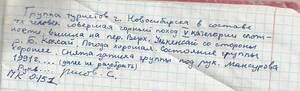 Группа туристов г. Новосибирска в составе
7х человек совершая горный поход V категории слож-
ности, вышла на пер. Верх. Ункенсай со стороны
р. Б. Каксай. Погода хорошая. Состояние группы
хорошее. Снята записка группы под рук. Мансурова
1991г. ... (далее не разобрать)
Рук.
МК 0-151